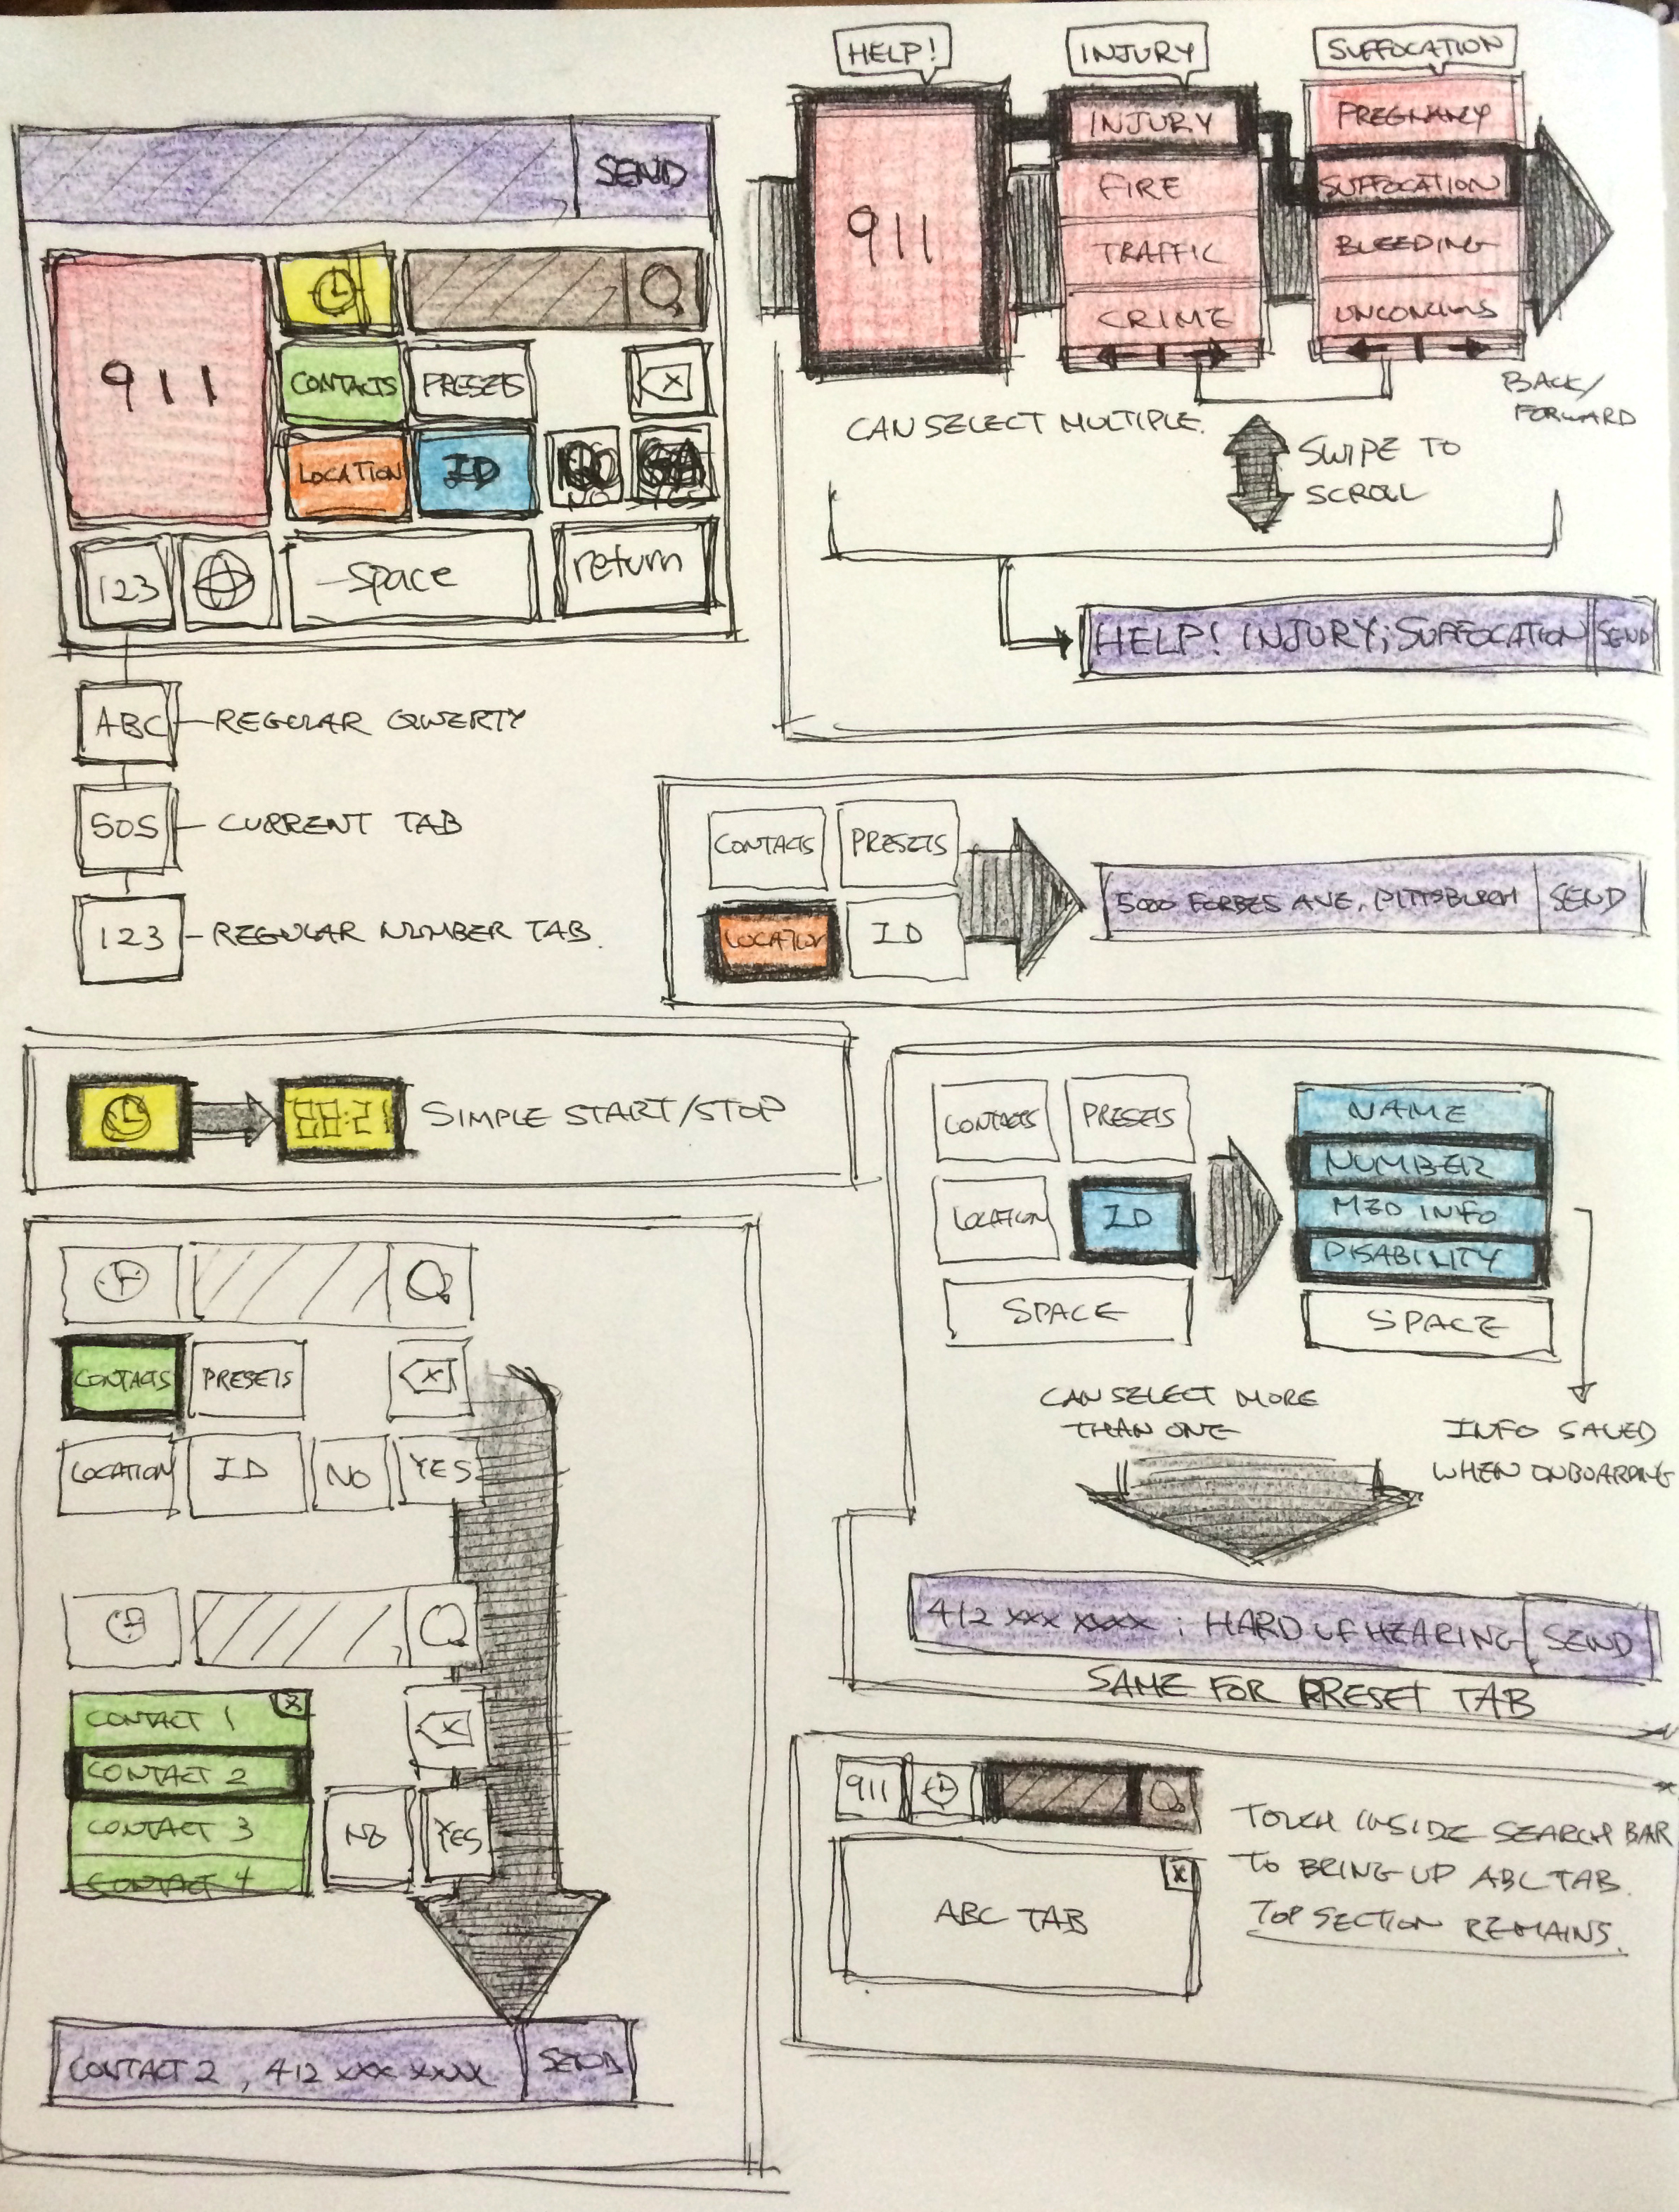 SEND
911
CONTACTS
PRESETS
LOCATION
ID
NO
YES
123
space
return
ABC
REGULAR QWERTY
SOS
CURRENT TAB
123
REGULAR NUMBER TAB.
HELP!
INJURY
SUFFOCATION
911
INJURY
FIRE
TRAFFIC
CRIME
PREGNANY
SUFFOCATION
BLEEDING
CAN SELECT MULTIPLE.
BACK/
FORWARD
SWIPE TO
SCROLL
HELP! INJURY; SUFFOCATION SEND
CONTACTS PRESETS
LOCATION ID
5000 FORBES AVE, PITTSBURGH SEND
SIMPLE START/STOP
CONTACTS PRESETS
LOCATION ID NO YES
CONTACT 1
CONTACT 2
CONTACT 3
CONTACT 4
NO YES
CONTACT 2, 412 XXX XXXX SEND
CONTACTS PRESETS
LOCATION ID
SPACE
NAME
NUMBER
MED INFO
DISABILITY
SPACE
CAN SELECT MORE
THAN ONE
INFO SAVED
WHEN ONBOARDING
412 XXX XXXX ; HARD OF HEARING SEND
SAME FOR PRESET TAB
911
ABC TAB
X
TOUCH INSIDE SEARCH BAR
TO BRING UP ABC TAB.
TOP SECTION REMAINS.